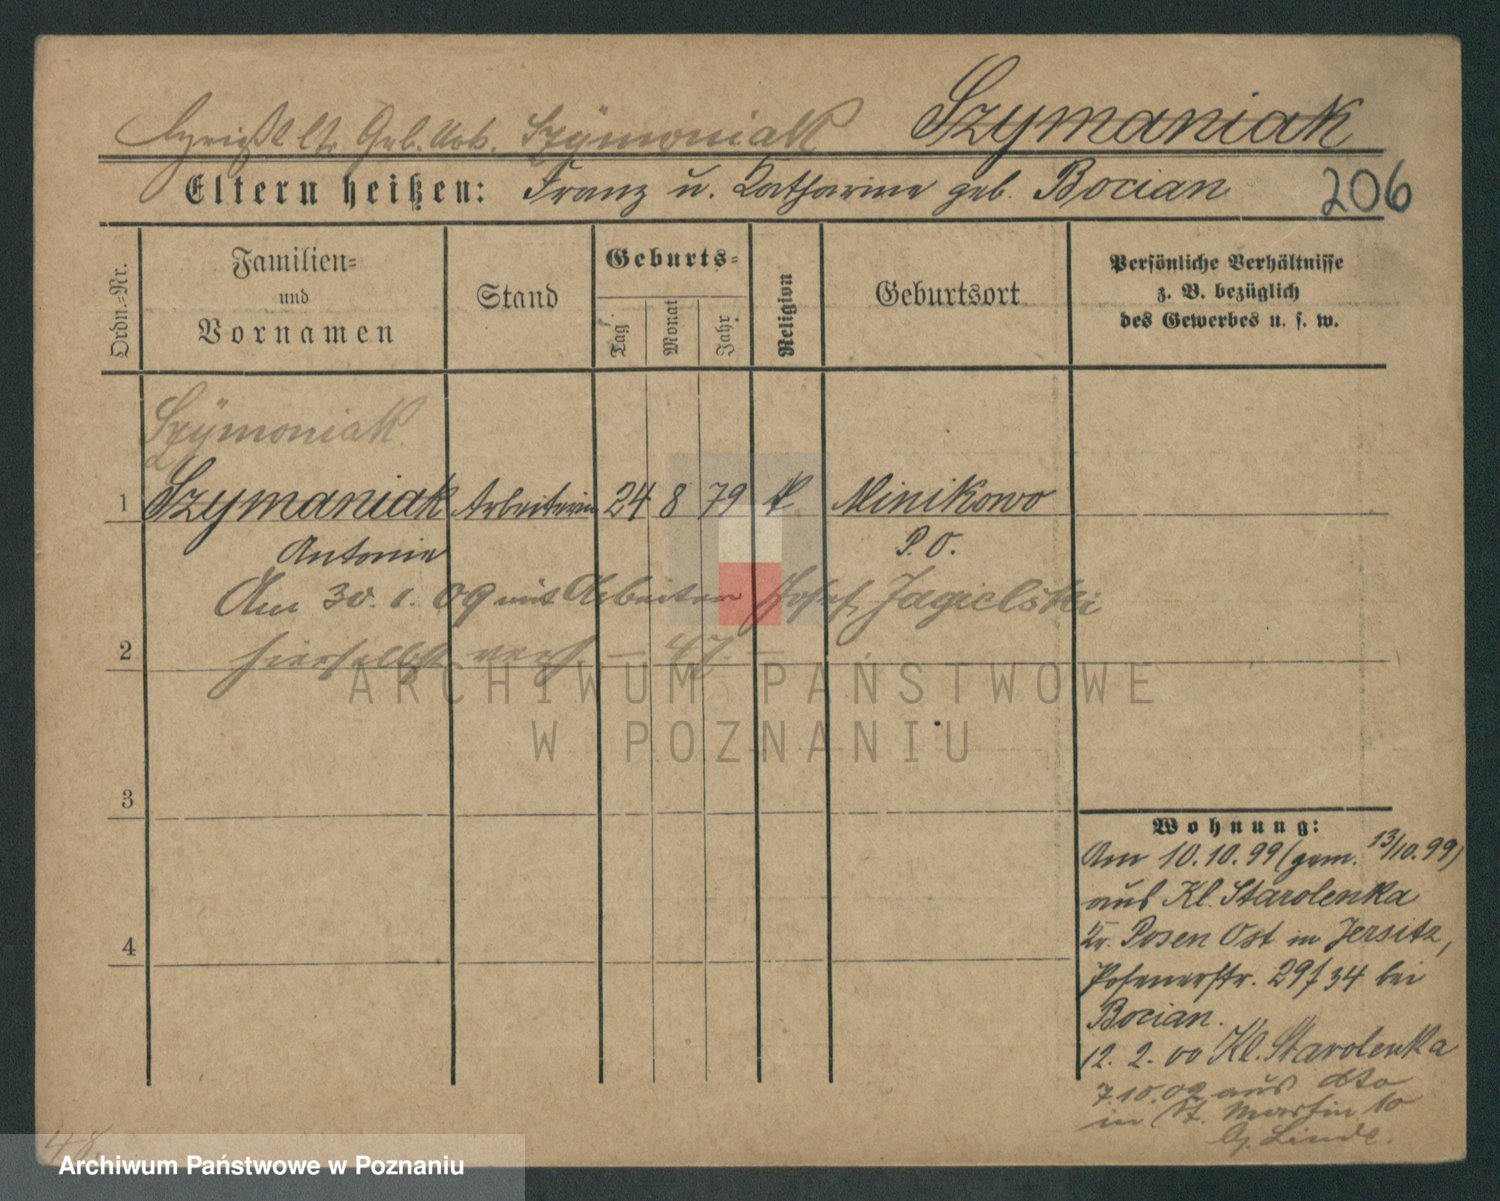 lt. Geb. Urk. Szÿmoniak Szymaniak
Eltern heißen: Franz u. Katharina geb. Bocian 206
Ordn.=Nr.
Familien= und Vornamen
Stand
Geburts=
Tag
Monat
Jahr
Religion
Geburtsort
Persönliche Verhältnisse
z. B. bezüglich
des Gewerbes u. s. w.
Szÿmoniak
1 Szymaniak Arbeiterin 24 8 79 k. Minikowo
Antonie P. O.
Am 30. 1. 09 mit Arbeiter Josef Jagielski
2 hierselbst verh. — 47 —
ARCHIWUM PAŃSTWOWE
W POZNANIU
3
4
Wohnung:
Am 10.10.99 (gem. 13/10.99)
aus Kl. Starolenka
Kr. Posen Ost in Jersitz,
Posenerstr. 29/34 bei
Bocian.
12. 2. 00 Kl. Starolenka
7.10.02 aus dto
in St. Martin 10
b/. Linde.
48
Archiwum Państwowe w Poznaniu